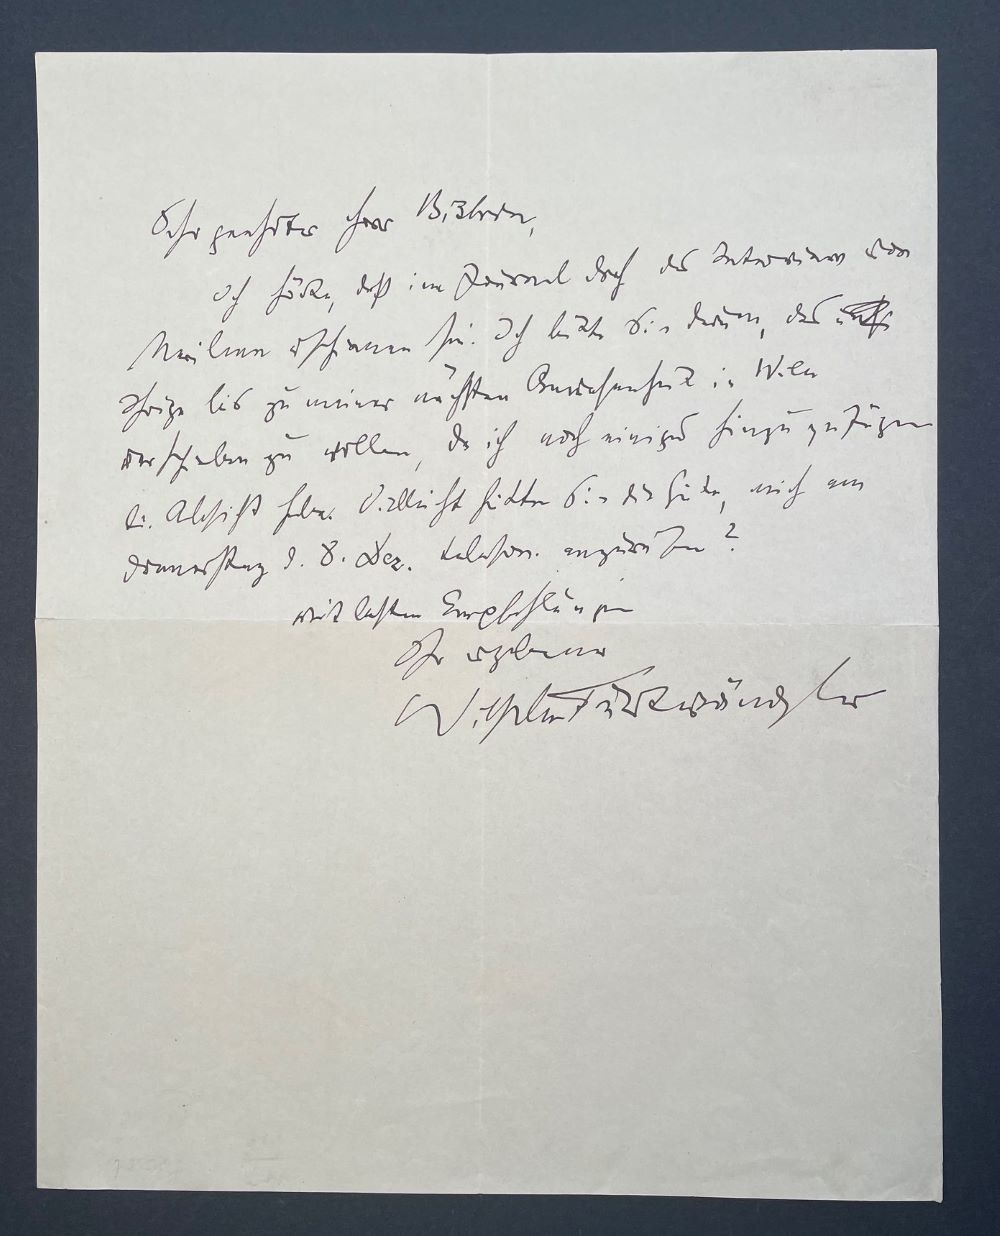 Sehr geehrter Herr
ich höre, daß im Journal doch das Interview von
erschienen sei. Ich bitte Sie darum, das
Ihrige bis zu meiner nächsten Anwesenheit in Wien
verschieben zu wollen, da ich noch einiges hinzuzufügen
die Absicht habe. Vielleicht hätten Sie die Güte, mich am
Donnerstag d. 8. Dez. telefon. anzurufen?
Mit besten Empfehlungen
Ihr ergebener
Wilhelm Furtwängler